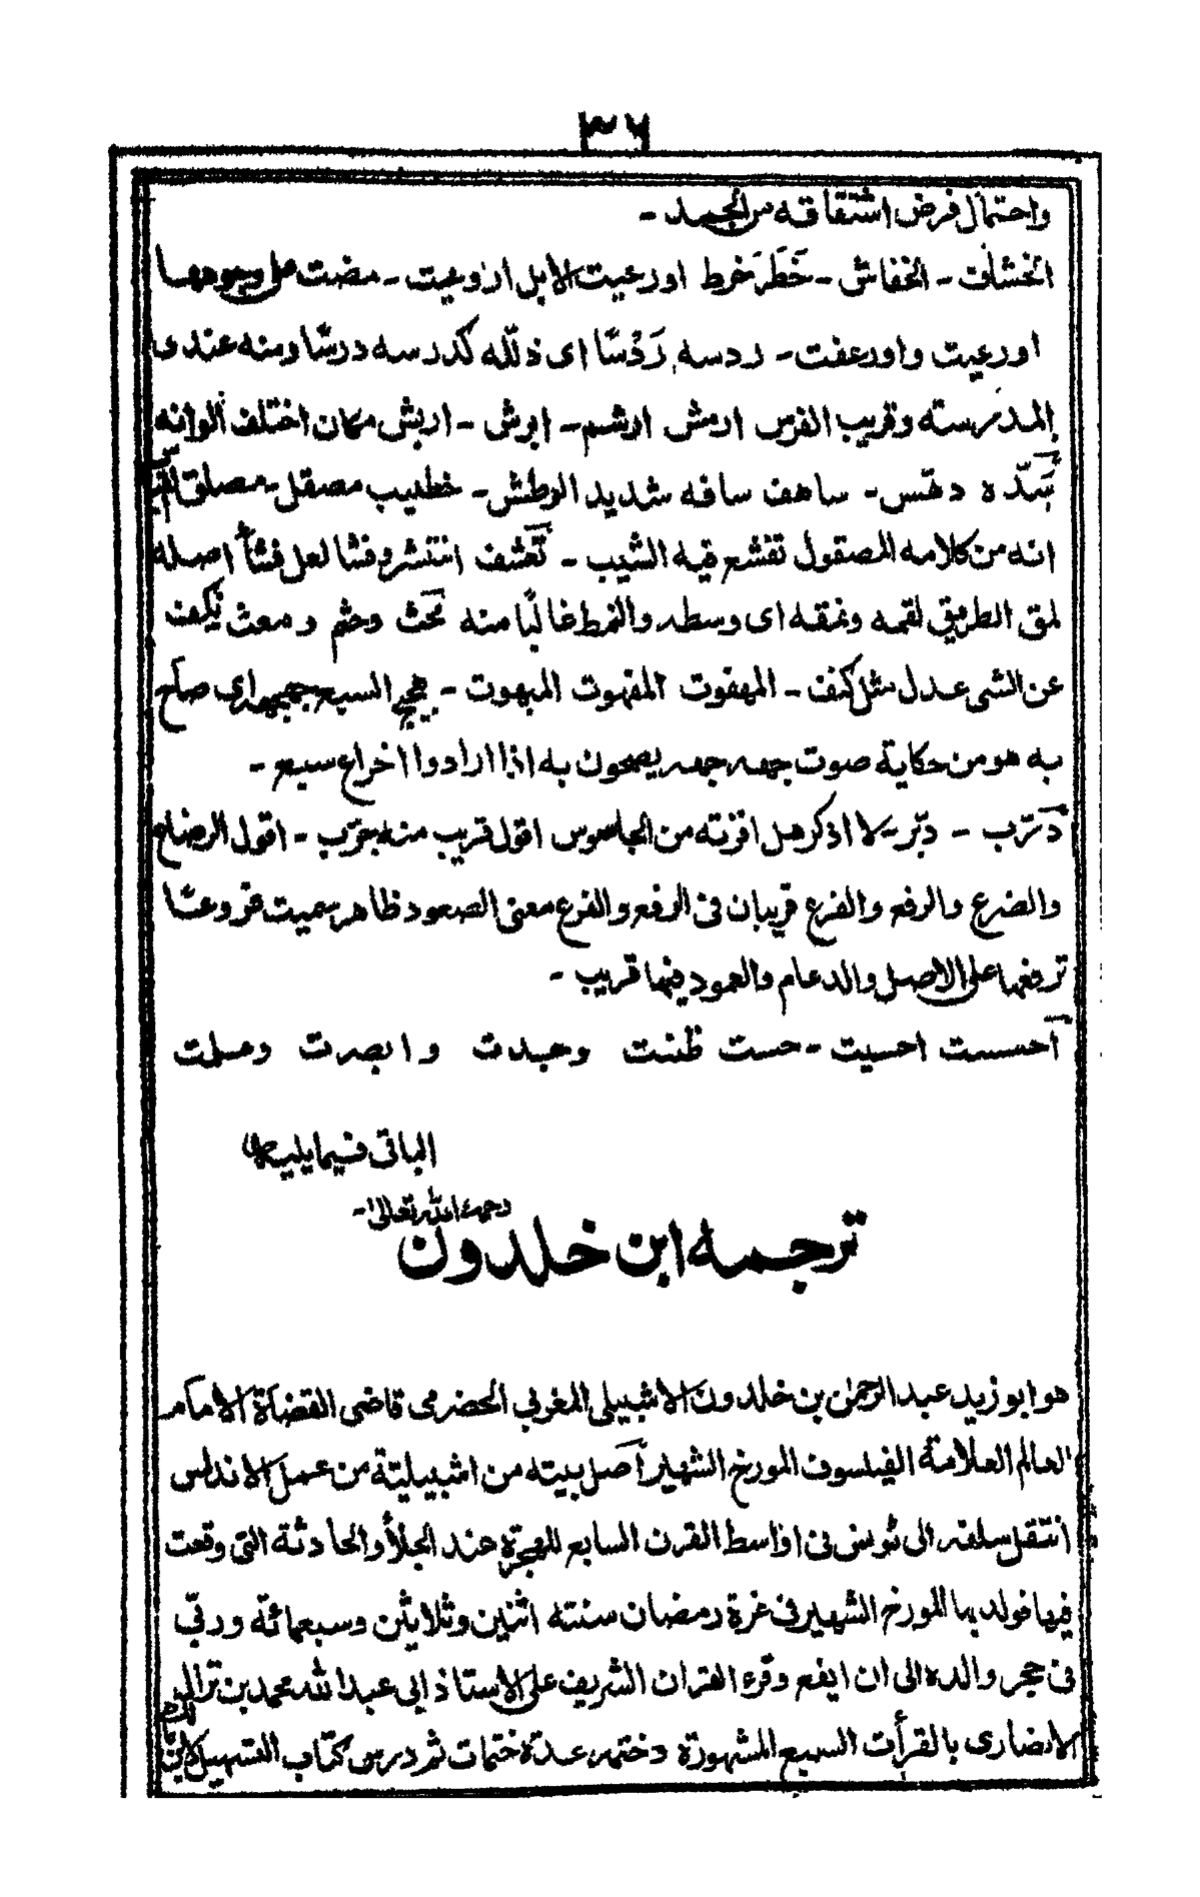 ٣٦
واحتمال فرض اشتقاقه من الجهد -
الخشاف - الخفاش - خَطَرَ مخرط اورعيت الابل ارزوعيت - مضت على وجوهها
اورعيت واورعفت - ردسه رَدْسًا اى ذلّله كدرسه درسًا ومنه عندى
المدرسته وقريب الفرس ارمش ارشم - ابرش - اربش مكان اختلف الوانه
شدّه دهس - ساهف سافه شديد العطش - خطيب مصقل - مصلق
انه من كلامه المصقول تفشع فيه الشيب - تقشف انتشر وفشا لعل فشأ اصله
لمق الطريق لقمه ونمقه اى وسطه والنمط غالبًا منه بحث وحثم ومعث نكف
عن الشى عدل مثل كنف - المهفوت المفهوت المبهوت - هجج السبع جهجهه اى صاح
به هو من حكاية صوت جهه جهه يصيحون به اذا ارادوا اخراع سبع -
درّب - دبّر - لا اذكر هل اقزته من الجاسوس اقول قريب منه جرّب - اقول الرضاع
والضرع والرفع والفرع قريبان فى الرفع والفرع معنى الصعود ظاهر سميت فروعًا
ترفعها على الاصل والدعام والعمود فيها قريب -
آحسست احسيت - حست ظننت وجدت وابصرت وعلمت
الباقى فيما يليه
ترجمه ابن خلدون رحمه الله تعالى -
هو ابو زيد عبد الرحمٰن بن خلدون الاشبيلى المغربي الحضرمى قاضى القضاة الامام
العالم العلامة الفيلسوف المورخ الشهير آصل بيته من اشبيلية من عمل الاندلس
انتقل سلفه الى تونس فى اواسط القرن السابع للهجرة عند الجلأ والحادثة التى وقعت
فيها فولد بها المورخ الشهير فى غرة رمضان سنته اثنين وثلاثين وسبعمائة وربّي
فى حجر والده الى ان ايفع وقرء القران الشريف على الاستاذ ابى عبد الله محمد بن نزال
الانصارى بالقرأت السبع المشهورة وختمه عدة ختمات ثم درس كتاب التسهيل لابن